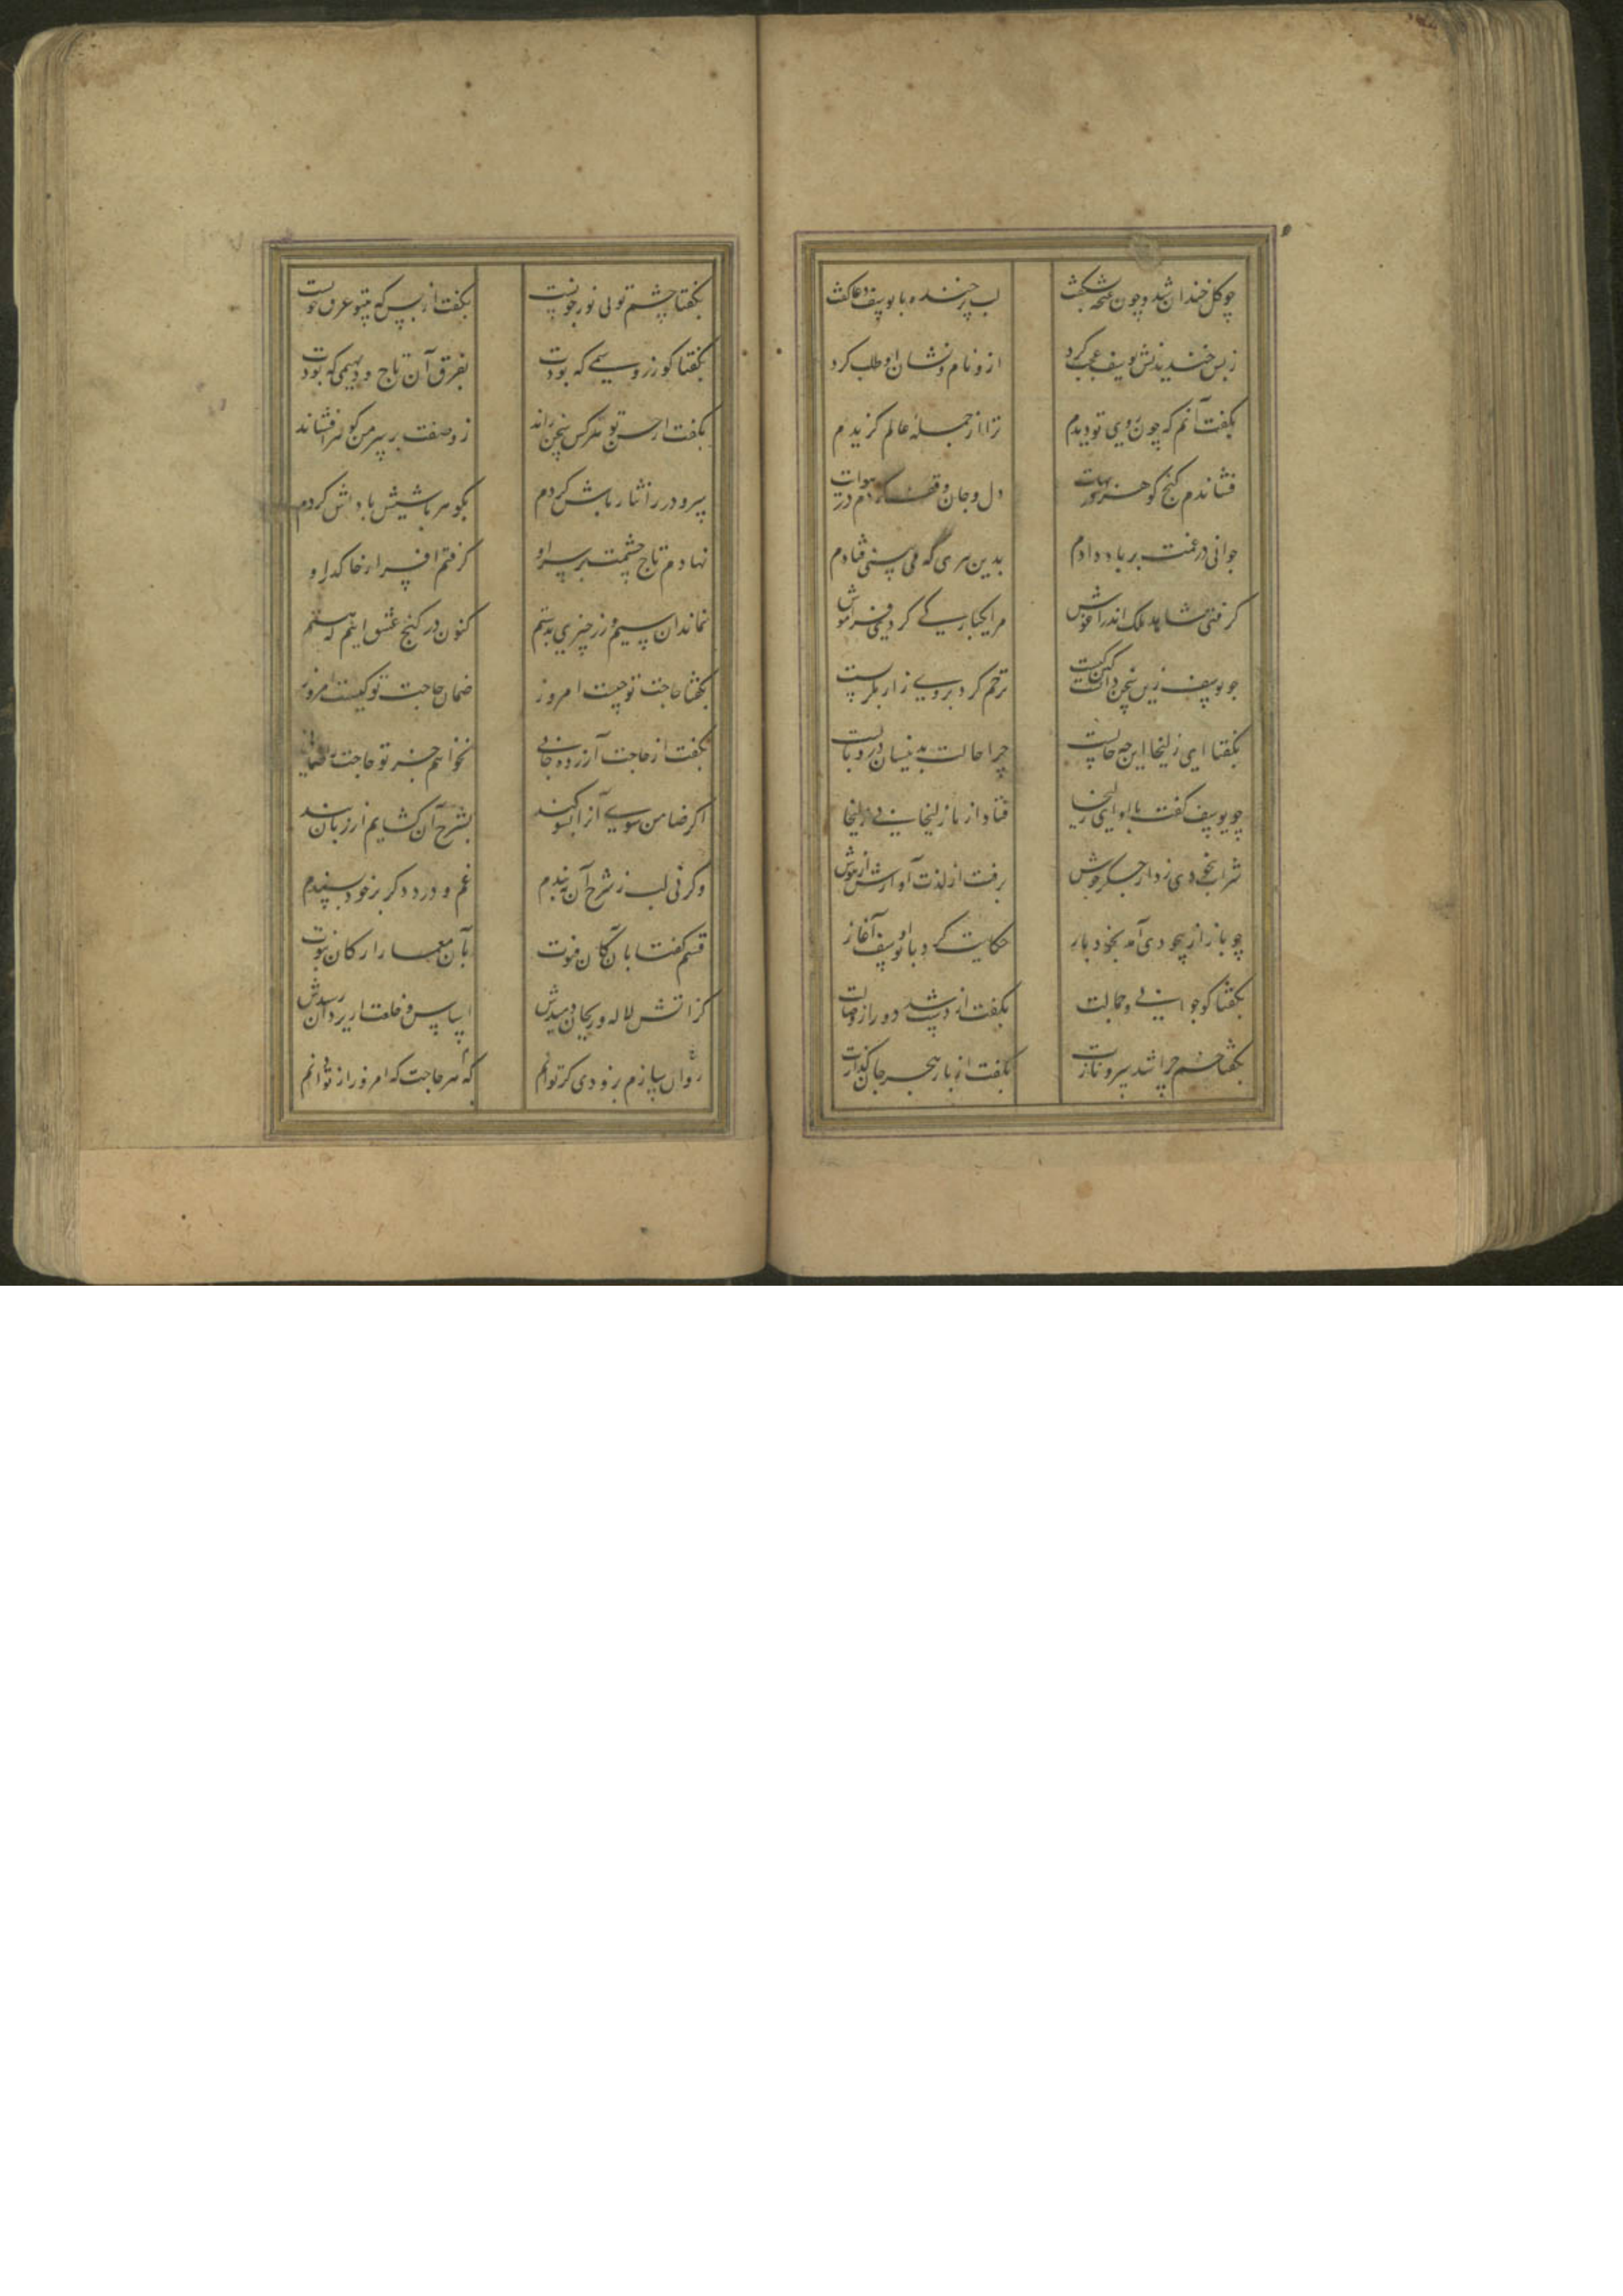 چو گل خندان شد و چون غنچه بشکفت
لب پر خنده با یوسف دعا گفت
ز بس خندیدنش یوسف عجب کرد
ازو نام و نشان او طلب کرد
بگفت آنم که چون روی تو دیدم
ترا از جملهٔ عالم گزیدم
فشاندم گنج گوهر در بهایت
دل و جان وقف کردم در هوایت
جوانی در غمت بر باد دادم
بدین سری که می بینی فتادم
گرفتی شاهد ملک اندر آغوش
مرا یکبارگی کردی فراموش
چو یوسف زین سخن دانست کین کیست
ترحم کرد بروی زار بگریست
بگفتا ای زلیخا این چه حالست
چرا حالت بدینسان در وبالست
چو یوسف گفت با او ای زلیخا
فتاد از پا زلیخا بی زلیخا
شراب بیخودی زد از جگر جوش
برفت از لذت آوازش از هوش
چو باز از بیخودی آمد بخود باز
حکایت کرد با او یوسف آغاز
بگفتا کو جوانی و جمالت
بگفت از دست شد دور از وصالت
بگفتا خم چرا شد سرو نازت
بگفت از بار هجر جان گدازت
بگفتا چشم تو بی نور چونست
بگفت از بس که بیتو غرق خونست
بگفتا کو زر و سیمی که بودت
بفرق آن تاج و دیهیمی که بودت
بگفت از حسن تو هر کس سخن راند
ز وصفت بر سر من گوهر افشاند
سر و زر را نثار پاش کردم
بگوهر پاشیش پاداش کردم
نهادم تاج حشمت بر سر او
گرفتم افسر از خاک در او
نماند از سیم و زر چیزی بدستم
کنون در گنج عشق اینم که هستم
بگفتا حاجت تو چیست امروز
ضمان حاجت تو کیست امروز
بگفت از حاجت آزرده جانی
نخواهم جز تو حاجت را ضمانی
اگر ضامن شوی آنرا بسوگند
بشرح آن گشایم از زبان بند
وگر نی لب ز شرح آن ببندم
غم و درد دگر بر خود پسندم
قسم گفتا بآن کان فتوت
بآن معمار ارکان نبوت
کز آتش لاله و ریحان دمیدش
لباس خلعت از یزدان رسیدش
که هر حاجت که امروز از تو دانم
روان سازم بزودی گر توانم